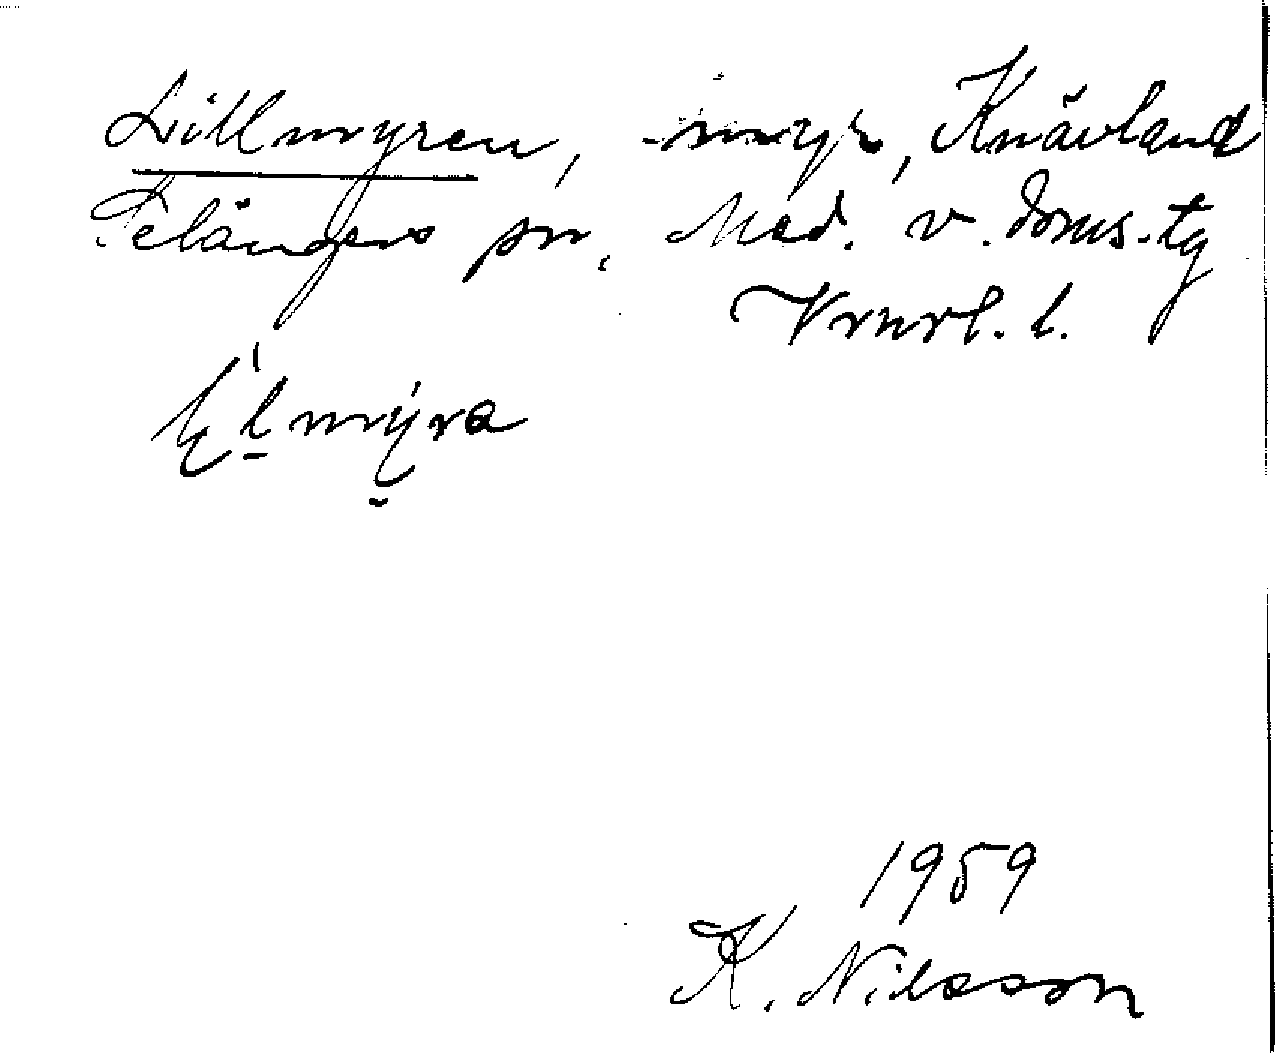 Lillmyren, -myr, Knävland
Selångers sn. Med. v. doms.-tg
Vrnrl. l.
myra
1959
K. Nilsson